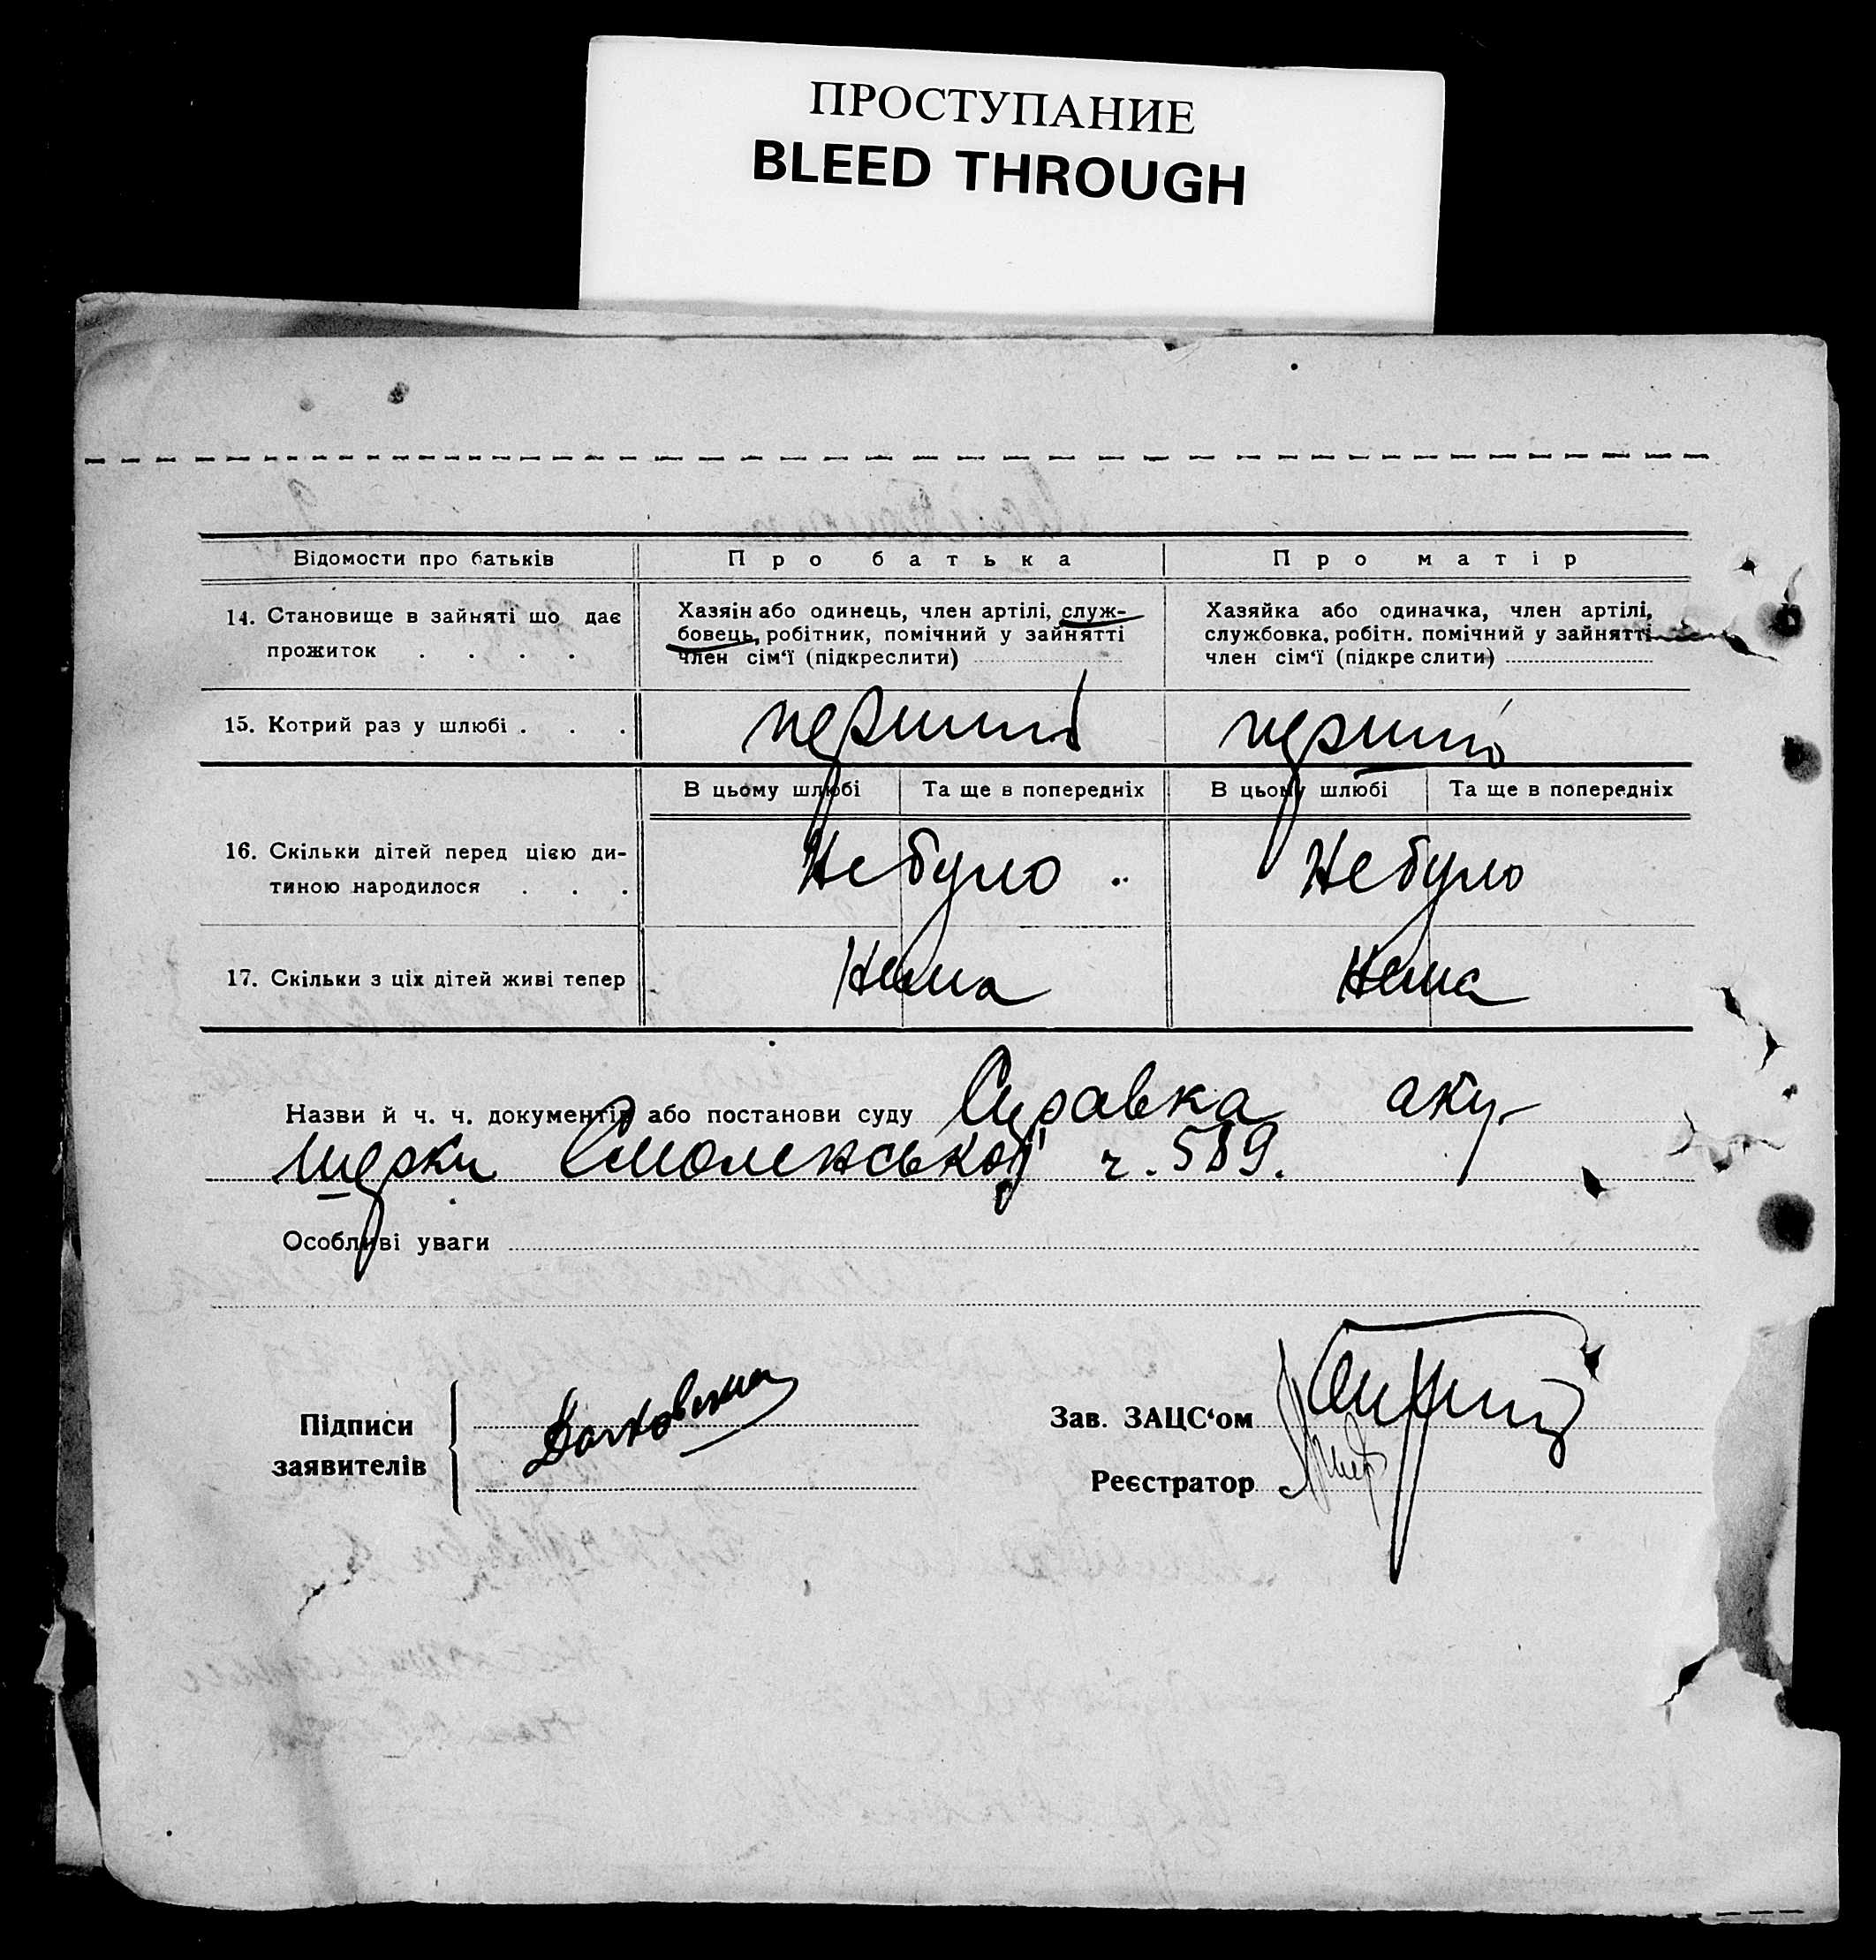 ПРОСТУПАНИЕ
BLEED THROUGH
Відомости про батьків
Про батька
Про матір
14. Становище в зайняті що дає
прожиток . . . .
Хазяін або одинець, член артілі, служ-
бовець, робітник, помічний у зайнятті
член сім‘ї (підкреслити)
Хазяйка або одиначка, член артілі,
службовка, робітн. помічний у зайнятті
член сім‘ї (підкреслити)
15. Котрий раз у шлюбі . . .
перший
перший
В цьому шлюбі
Та ще в попередніх
В цьому шлюбі
Та ще в попередніх
16. Скільки дітей перед цією ди-
тиною народилося . . .
Не було
Не було
17. Скільки з ціх дітей живі тепер
Нема
Нема
Назви й ч. ч. документів або постанови суду Справка аку-
шерки Смоленської ч. 589.
Особливі уваги
Підписи
заявителів
Зав. ЗАЦС‘ом
Реєстратор